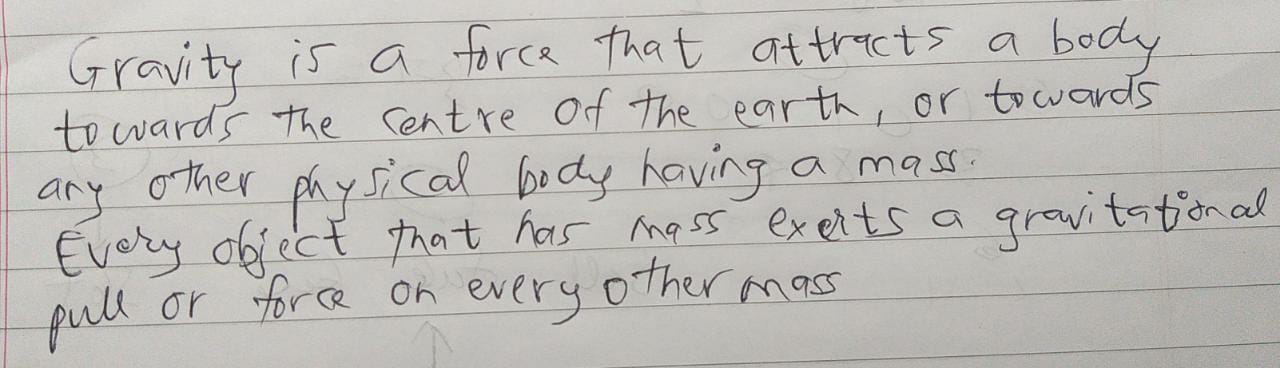 Gravity is a force that attracts a body
towards the centre of the earth, or towards
any other physical body having a mass.
Every object that has mass exerts a gravitational
pull or force on every other mass